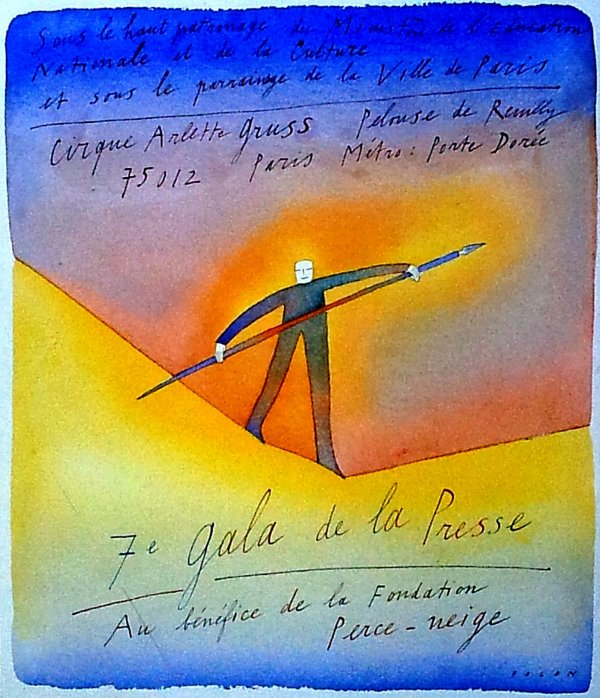 Sous le haut patronage du Ministère de l'Education
Nationale et de la Culture
et sous le parrainage de la Ville de Paris
Cirque Arlette Gruss Pelouse de Reuilly
75012 Paris Métro: Porte Dorée
7e gala de la Presse
Au bénéfice de la Fondation
Perce-neige
FOLON